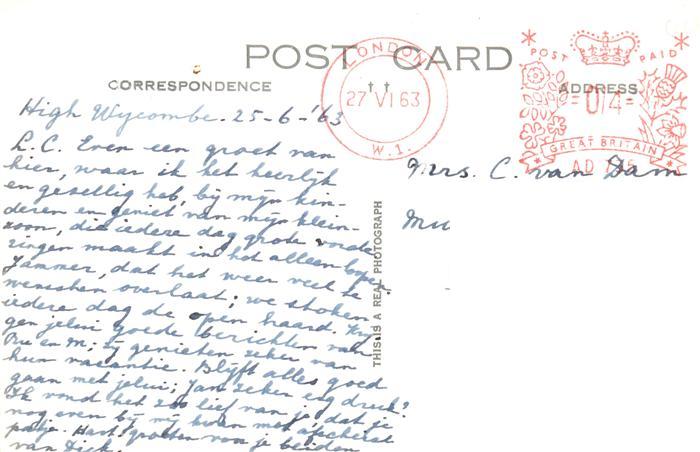 POST CARD
CORRESPONDENCE
ADDRESS
LONDON
27 VI 63
W.1.
POST PAID
=0/4=
GREAT BRITAIN
AD
THIS IS A REAL PHOTOGRAPH
High Wycombe. 25-6-'63
L.C. Even een groet van
hier, waar ik het heerlijk
en gezellig heb, bij mijn kin-
deren en geniet van mijn klein-
zoon, die iedere dag grote vorde
ringen maakt in het alleen lopen.
Jammer, dat het weer veel te
wensen overlaat; we stoken
iedere dag de open haard.
gen jelui goede berichten van
en M; zij genieten zeker van
hun vacantie. Blijft alles goed
gaan met jelui; Jan zeker erg druk?
Ik vond het zoo lief van je, dat je
nog even bij mij kwam met afscheid
Hart. groeten voor je beiden
van Dick.
Mrs. C. van Dam